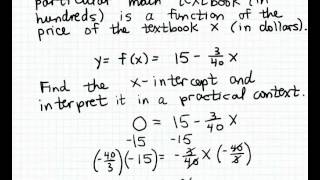 particular math textbook (in
hundreds) is a function of the
price of the textbook x (in dollars).
y = f(x) = 15 - 3/40 x
Find the x-intercept and
interpret it in a practical context.
0 = 15 - 3/40 x
-15 -15
(-40/3)(-15) = -3/40 x (-40/3)